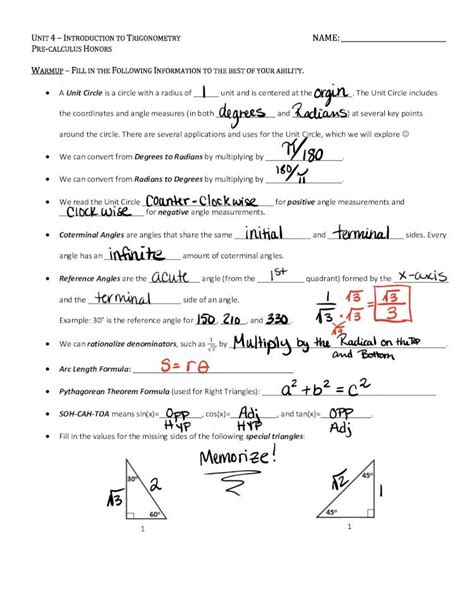 UNIT 4 – INTRODUCTION TO TRIGONOMETRY NAME: ____________________
PRE-CALCULUS HONORS
WARMUP – FILL IN THE FOLLOWING INFORMATION TO THE BEST OF YOUR ABILITY.
• A Unit Circle is a circle with a radius of 1 unit and is centered at the orgin. The Unit Circle includes
the coordinates and angle measures (in both degrees and Radians) at several key points
around the circle. There are several applications and uses for the Unit Circle, which we will explore ☺
• We can convert from Degrees to Radians by multiplying by π/180.
• We can convert from Radians to Degrees by multiplying by 180/π.
• We read the Unit Circle Counter-Clockwise for positive angle measurements and
Clockwise for negative angle measurements.
• Coterminal Angles are angles that share the same initial and terminal sides. Every
angle has an infinite amount of coterminal angles.
• Reference Angles are the acute angle (from the 1st quadrant) formed by the x-axis
and the terminal side of an angle.
1/√3 · √3/√3 = √3/3
Example: 30° is the reference angle for 150, 210, and 330.
• We can rationalize denominators, such as 1/√3 by Multiply by the Radical on the TOP
and Bottom
• Arc Length Formula: S = rθ
• Pythagorean Theorem Formula (used for Right Triangles): a² + b² = c²
• SOH-CAH-TOA means sin(x)= OPP/HYP, cos(x)= Adj/HYP, and tan(x)= OPP/Adj
• Fill in the values for the missing sides of the following special triangles:
Memorize!
30°
√3
2
60°
1
45°
√2
1
45°
1